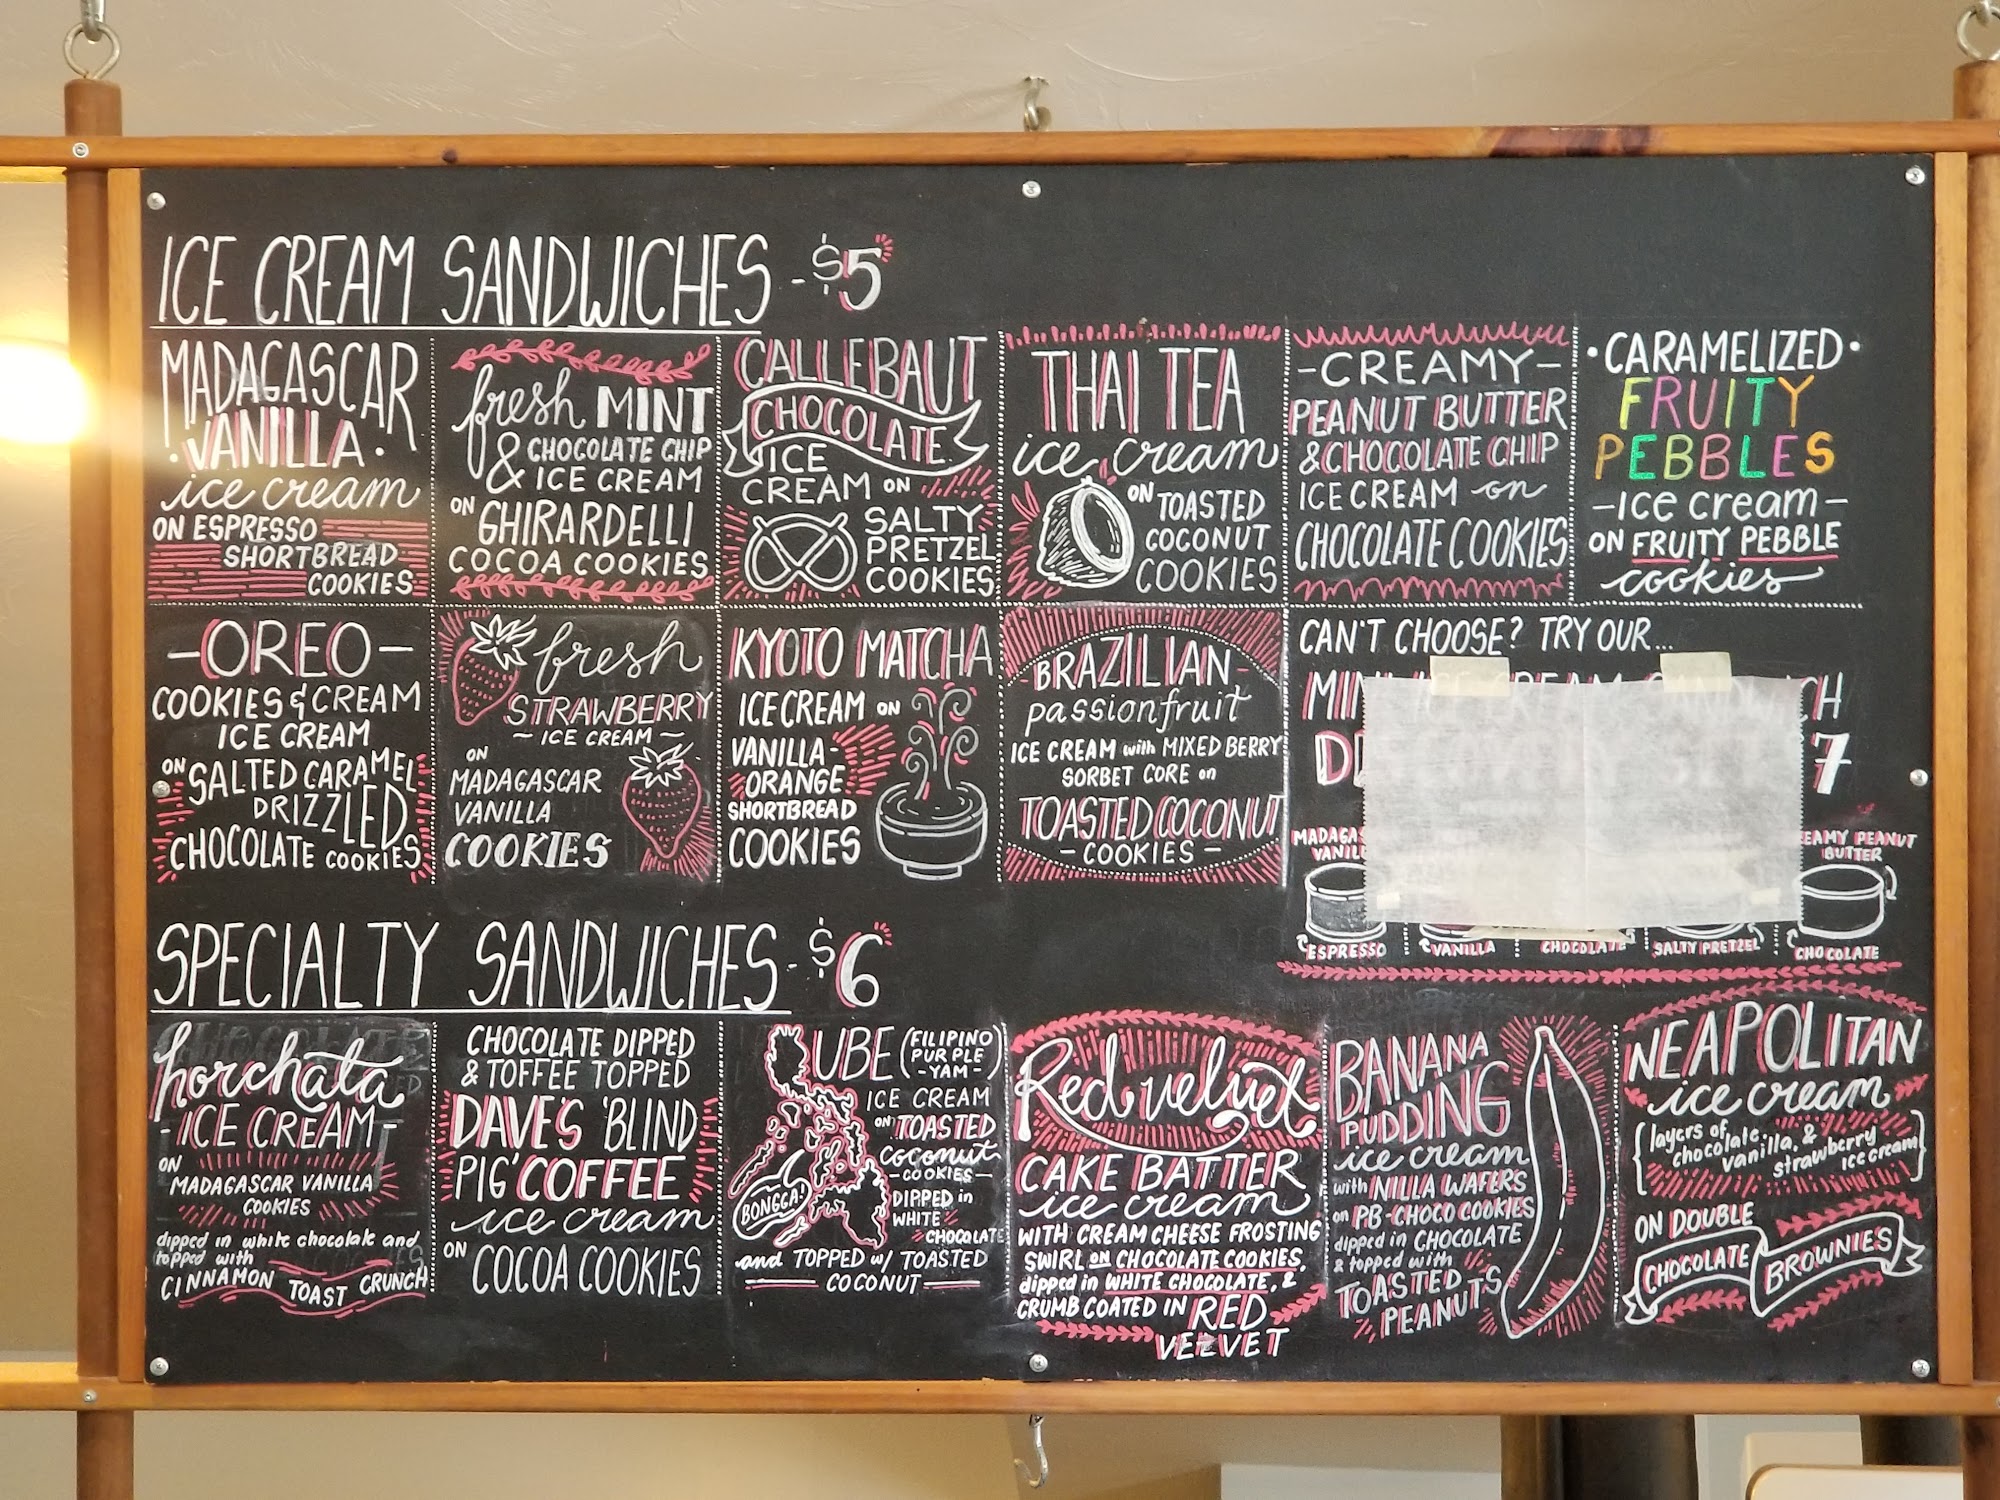 ICE CREAM SANDWICHES - $5
MADAGASCAR
·VANILLA·
ice cream
ON ESPRESSO
SHORTBREAD
COOKIES
fresh MINT
& CHOCOLATE CHIP
ICE CREAM
ON GHIRARDELLI
COCOA COOKIES
CALLEBAUT
CHOCOLATE
ICE
CREAM ON
SALTY
PRETZEL
COOKIES
THAI TEA
ice cream
ON TOASTED
COCONUT
COOKIES
-CREAMY-
PEANUT BUTTER
& CHOCOLATE CHIP
ICE CREAM on
CHOCOLATE COOKIES
·CARAMELIZED·
FRUITY
PEBBLES
-ice cream-
ON FRUITY PEBBLE
cookies
-OREO-
COOKIES & CREAM
ICE CREAM
ON SALTED CARAMEL
DRIZZLED
CHOCOLATE COOKIES
fresh
STRAWBERRY
~ICE CREAM~
ON
MADAGASCAR
VANILLA
COOKIES
KYOTO MATCHA
ICE CREAM ON
VANILLA-
ORANGE
SHORTBREAD
COOKIES
-BRAZILIAN-
passionfruit
ICE CREAM with MIXED BERRY
SORBET CORE on
TOASTED COCONUT
-COOKIES-
CAN'T CHOOSE? TRY OUR...
7
BUTTER
ESPRESSO
VANILLA
CHOCOLATE
SALTY PRETZEL
CHOCOLATE
SPECIALTY SANDWICHES - $6
horchata
-ICE CREAM-
ON
MADAGASCAR VANILLA
COOKIES
dipped in white chocolate and
topped with
CINNAMON TOAST CRUNCH
CHOCOLATE DIPPED
& TOFFEE TOPPED
DAVE'S 'BLIND
PIG' COFFEE
ice cream
ON COCOA COOKIES
UBE (FILIPINO
PURPLE
-YAM-)
ICE CREAM
ON TOASTED
coconut
COOKIES-
BONGGA!
DIPPED in
WHITE
CHOCOLATE
and TOPPED w/ TOASTED
COCONUT
Red velvet
CAKE BATTER
ice cream
WITH CREAM CHEESE FROSTING
SWIRL on CHOCOLATE COOKIES,
dipped in WHITE CHOCOLATE, &
CRUMB COATED IN RED
VELVET
BANANA
PUDDING
ice cream
with NILLA WAFERS
on PB-CHOCO COOKIES
dipped in CHOCOLATE
& topped with
TOASTED
PEANUTS
NEAPOLITAN
ice cream
{layers of
chocolate,
vanilla, &
strawberry
ice cream}
ON DOUBLE
CHOCOLATE
BROWNIES